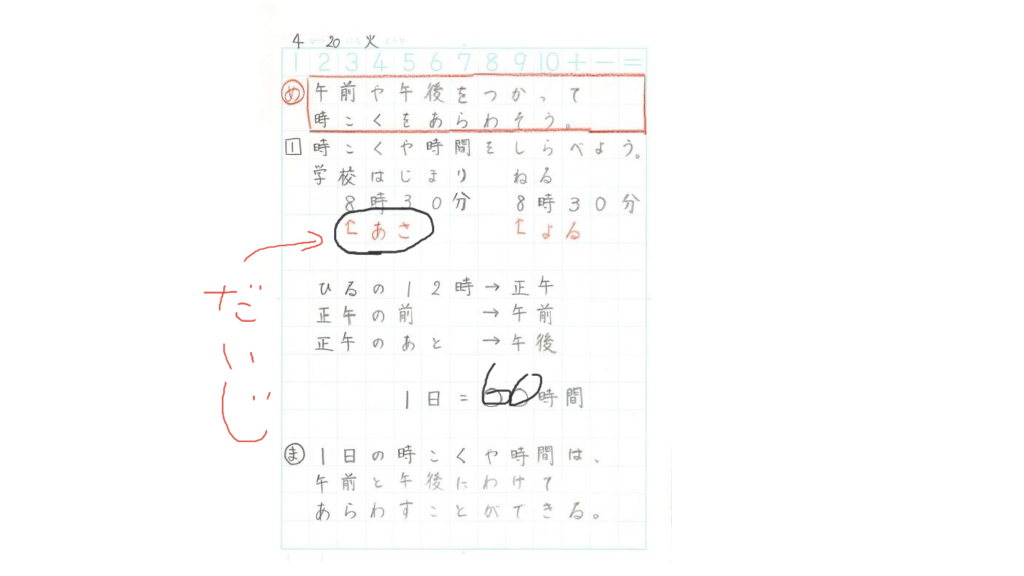 4 20 火
1 2 3 4 5 6 7 8 9 10 + − =
め 午前や午後をつかって
時こくをあらわそう。
1 時こくや時間をしらべよう。
学校はじまり ねる
8時30分 8時30分
↑あさ ↑よる
だいじ
ひるの12時→正午
正午の前 →午前
正午のあと →午後
1日=60時間
ま 1日の時こくや時間は、
午前と午後にわけて
あらわすことができる。